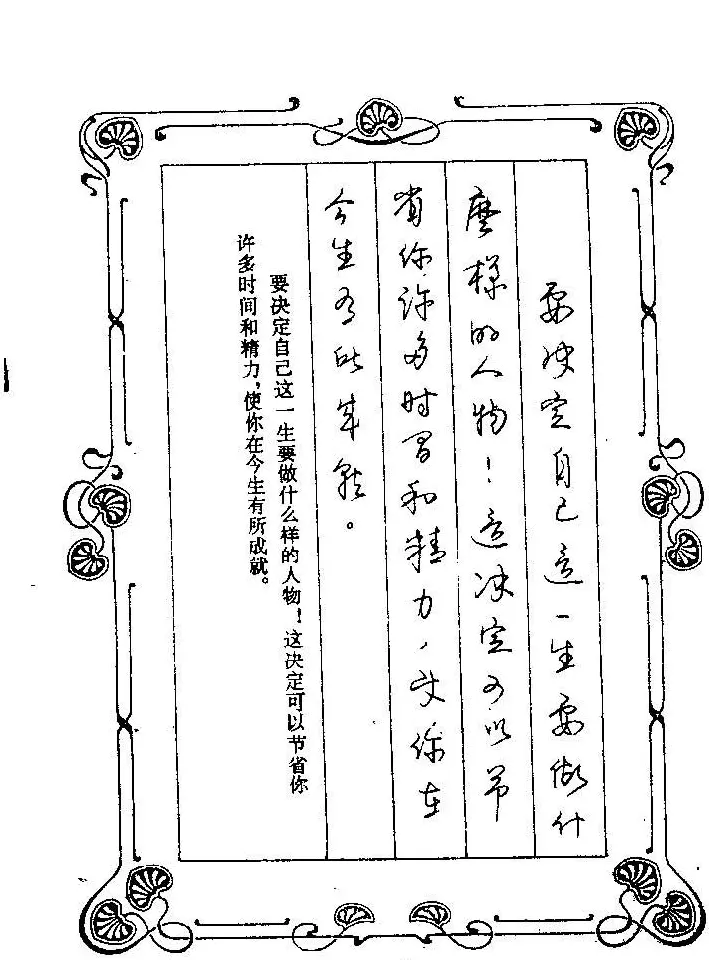 要决定自己这一生要做什
麼樣的人物！这决定可以节
省你许多时间和精力，使你在
今生有所成就。
要决定自己这一生要做什么样的人物！这决定可以节省你
许多时间和精力，使你在今生有所成就。